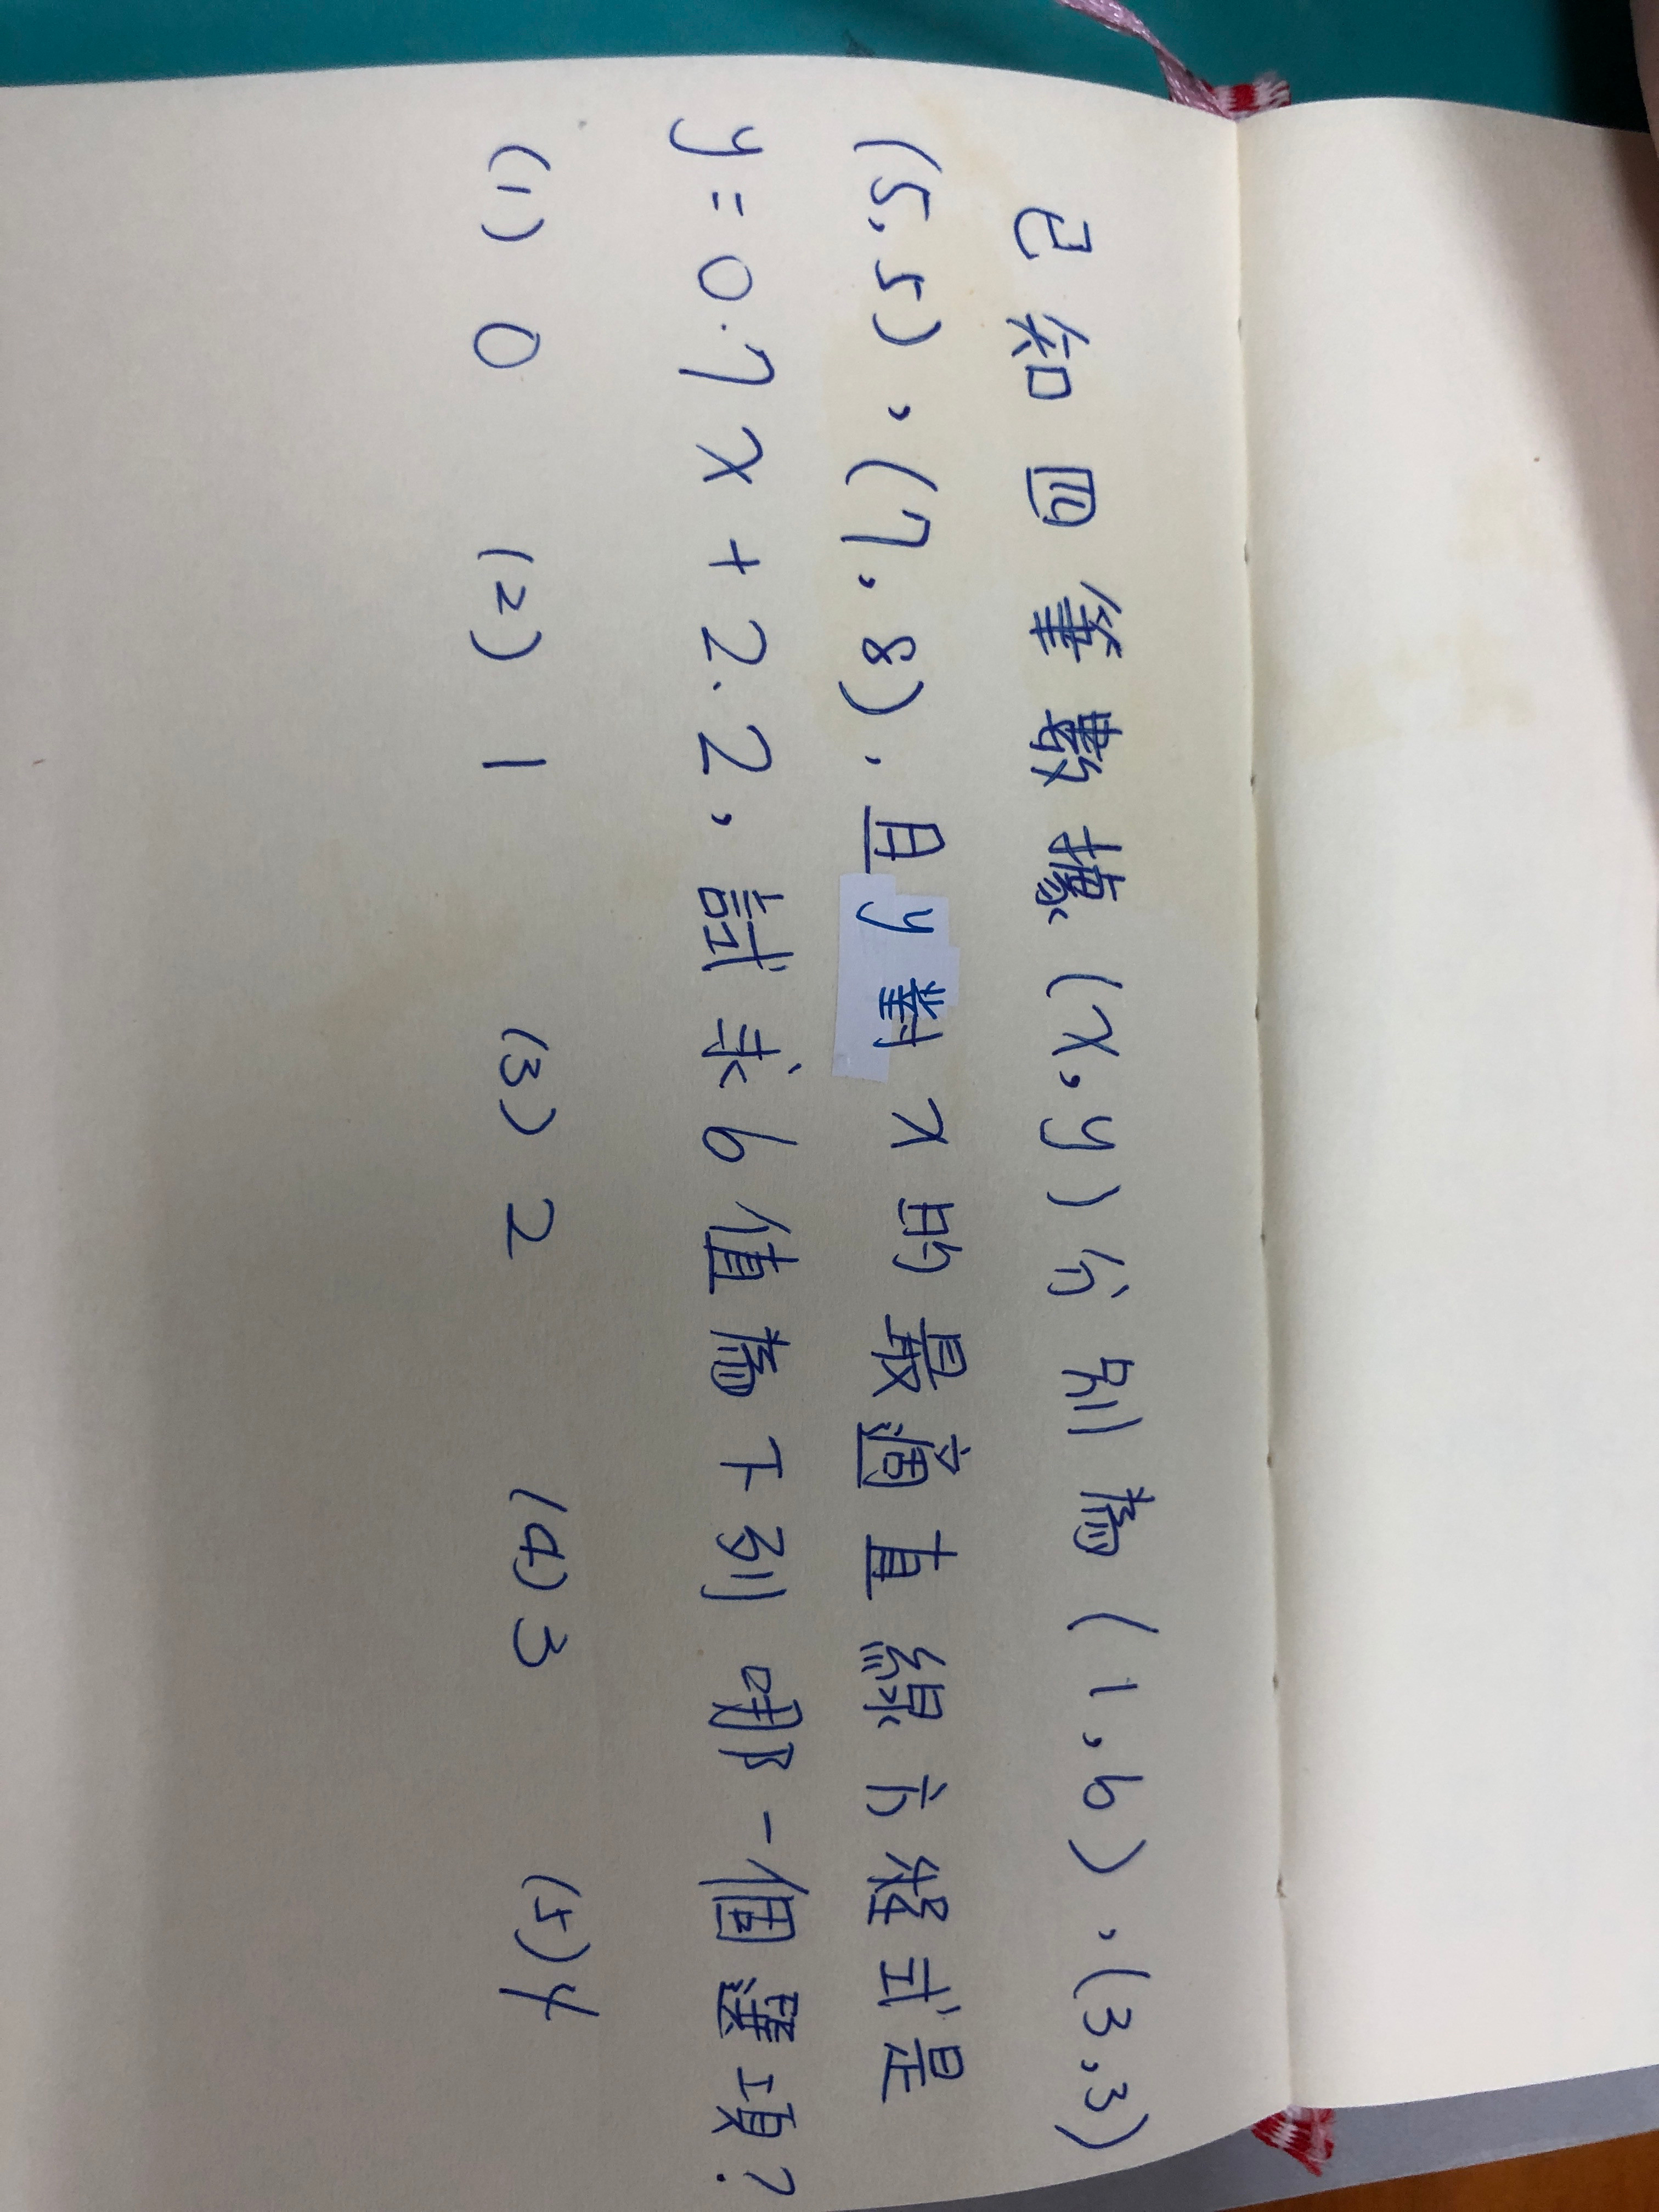 已知四筆數據(x,y)分別為(1,b),(3,3)
(5,5),(7,8).且y對x的最適直線方程式是
y=0.7x+2.2,試求b值為下列哪一個選項?
(1) 0 (2) 1 (3) 2 (4) 3 (5) 4